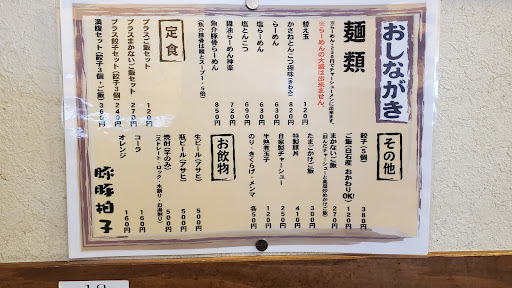 おしながき
麺類
※らーめん+230円でチャーシューメンに出来ます。
※らーめんの大盛は出来ません。
替え玉 120円
かさねとんこつ極味(きわみ) 820円
らーめん 630円
塩らーめん 630円
塩とんこつ 690円
醤油らーめん神楽 720円
魚介豚骨らーめん 850円
(魚介豚骨は麺とスープ1.5倍)
定食
プラスご飯セット 120円
プラスまかないご飯セット 270円
プラス餃子セット(餃子3個) 240円
満腹セット(餃子3個・ご飯) 360円
その他
餃子(5個) 380円
ご飯(白石産 おかわりOK!) 120円
まかないご飯 270円
たまごかけご飯 300円
特製豚丼 410円
自家製チャーシュー 250円
半熟煮玉子 120円
のり・きくらげ・メンマ 各50円
お飲物
生ビール(アサヒ) 500円
瓶ビール(アサヒ) 500円
焼酎(芋のみ) 500円
(ストレート・ロック・水割り・お湯割り)
コーラ 160円
オレンジ 160円
豚豚拍子